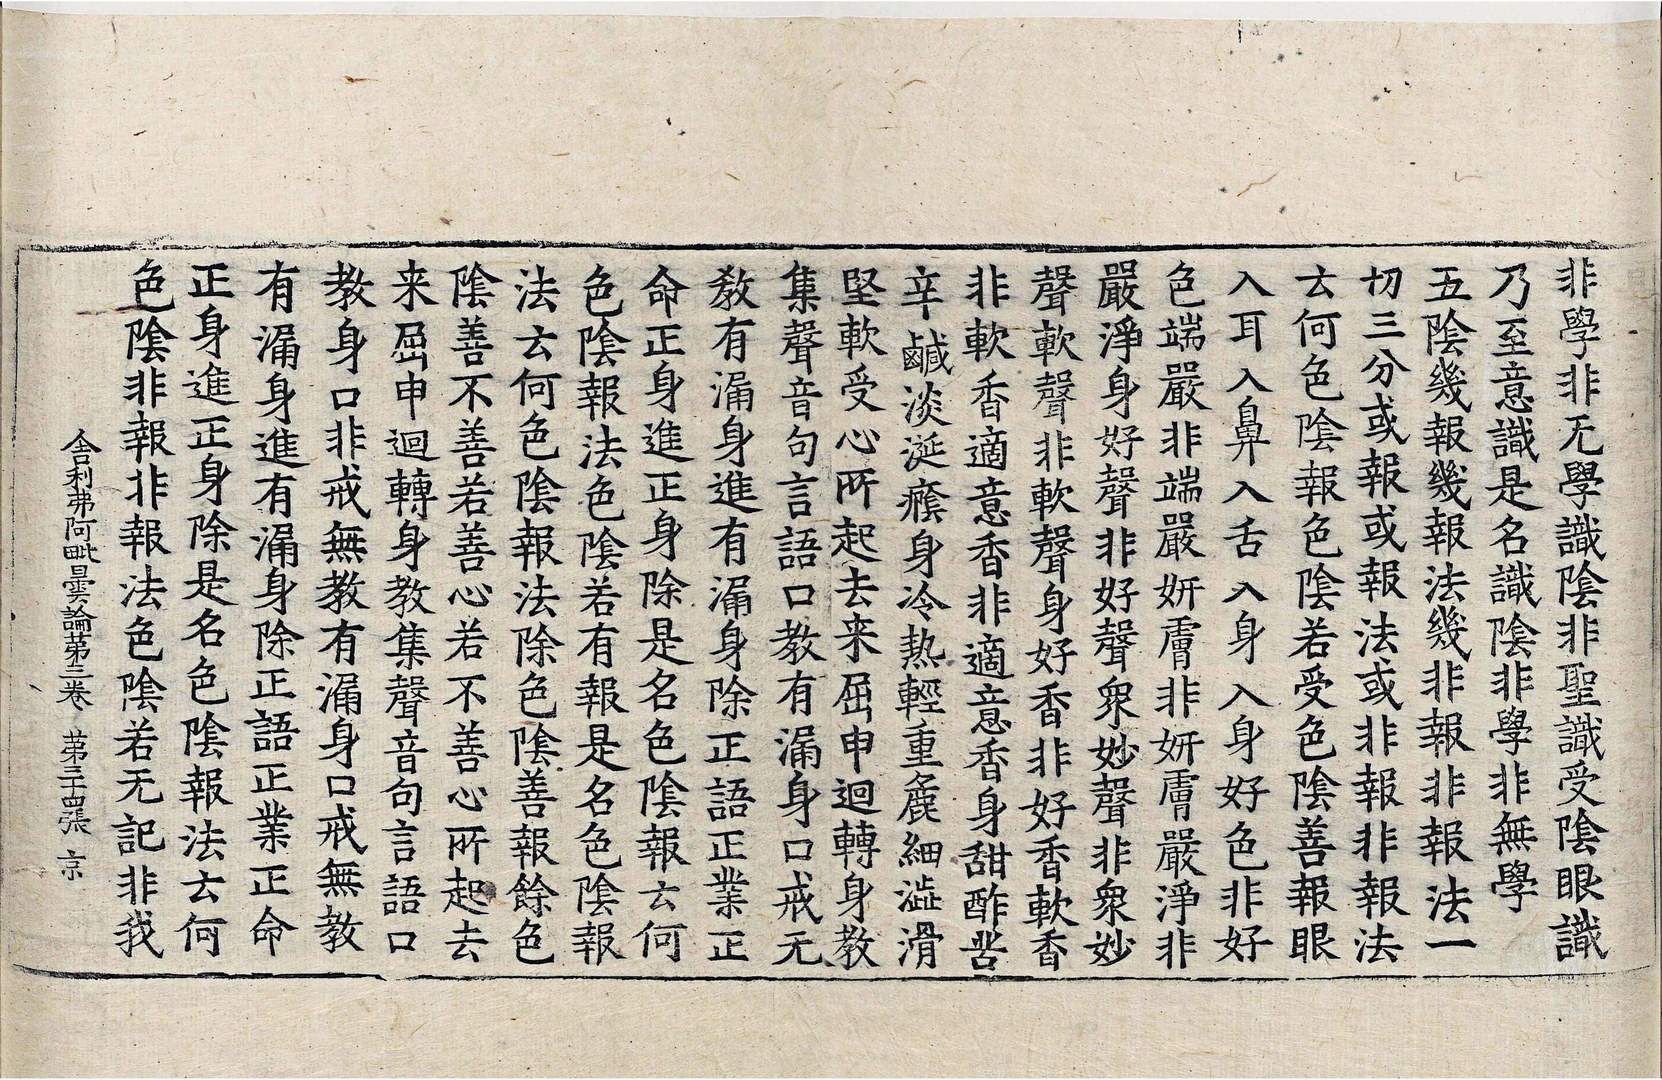 非學非无學識陰非聖識受陰眼識
乃至意識是名識陰非學非無學
五陰幾報幾報法幾非報非報法一
切三分或報或報法或非報非報法
云何色陰報色陰若受色陰善報眼
入耳入鼻入舌入身入身好色非好
色端嚴非端嚴妍膚非妍膚嚴淨非
嚴淨身好聲非好聲衆妙聲非衆妙
聲軟聲非軟聲身好香非好香軟香
非軟香適意香非適意香身甜酢苦
辛鹹淡涎癊身冷熱輕重麁細澁滑
堅軟受心所起去来屈申迴轉身教
集聲音句言語口教有漏身口戒无
教有漏身進有漏身除正語正業正
命正身進正身除是名色陰報云何
色陰報法色陰若有報是名色陰報
法云何色陰報法除色陰善報餘色
陰善不善若善心若不善心所起去
来屈申迴轉身教集聲音句言語口
教身口非戒無教有漏身口戒無教
有漏身進有漏身除正語正業正命
正身進正身除是名色陰報法云何
色陰非報非報法色陰若无記非我
舍利弗阿毗曇論第三卷 第三十四張 京